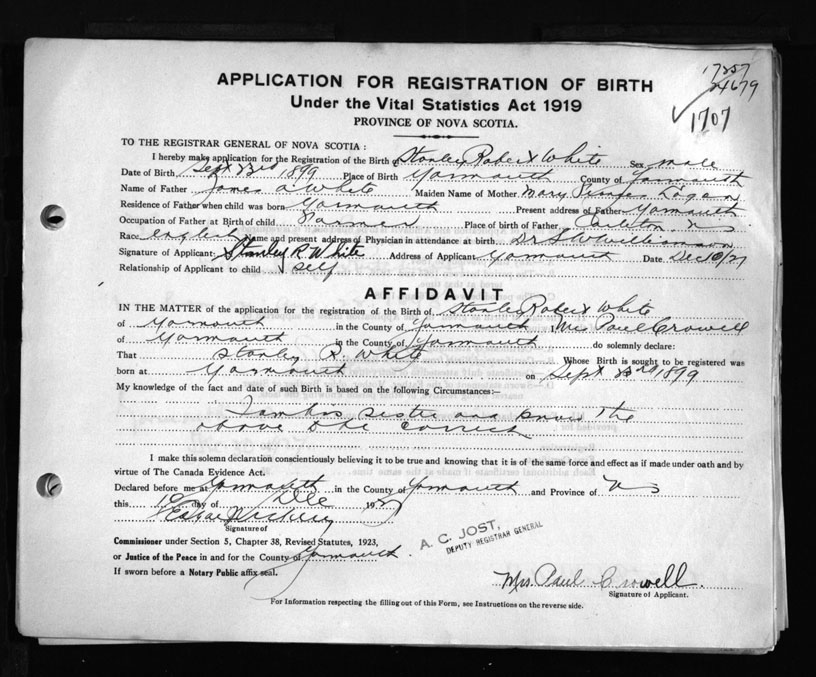 17257
24679
1707
APPLICATION FOR REGISTRATION OF BIRTH
Under the Vital Statistics Act 1919
PROVINCE OF NOVA SCOTIA.
TO THE REGISTRAR GENERAL OF NOVA SCOTIA :
I hereby make application for the Registration of the Birth of Stanley Robert White Sex male
Date of Birth Sept 23rd 1899 Place of Birth Yarmouth County of Yarmouth
Name of Father James A White Maiden Name of Mother Mary
Residence of Father when child was born Yarmouth Present address of Father Yarmouth
Occupation of Father at Birth of child Farmer Place of birth of Father Carleton, N S
Race English Name and present address of Physician in attendance at birth Dr S W Williamson
Signature of Applicant: Stanley R. White Address of Applicant Yarmouth Date Dec 10/27
Relationship of Applicant to child Self
AFFIDAVIT
IN THE MATTER of the application for the registration of the Birth of Stanley Robert White
of Yarmouth in the County of Yarmouth I Mrs Paul Crowell
of Yarmouth in the County of Yarmouth do solemnly declare:
That Stanley R. White Whose Birth is sought to be registered was
born at Yarmouth on Sept 23rd 1899
My knowledge of the fact and date of such Birth is based on the following Circumstances:—
I am his sister and know the
above to be correct
I make this solemn declaration conscientiously believing it to be true and knowing that it is of the same force and effect as if made under oath and by
virtue of The Canada Evidence Act.
Declared before me at Yarmouth in the County of Yarmouth and Province of N S
this 10 day of Dec 1927
Signature of
Commissioner under Section 5, Chapter 38, Revised Statutes, 1923,
or Justice of the Peace in and for the County of Yarmouth.
If sworn before a Notary Public affix seal.
A. C. JOST,
DEPUTY REGISTRAR GENERAL
Mrs. Paul Crowell.
Signature of Applicant.
For Information respecting the filling out of this Form, see Instructions on the reverse side.